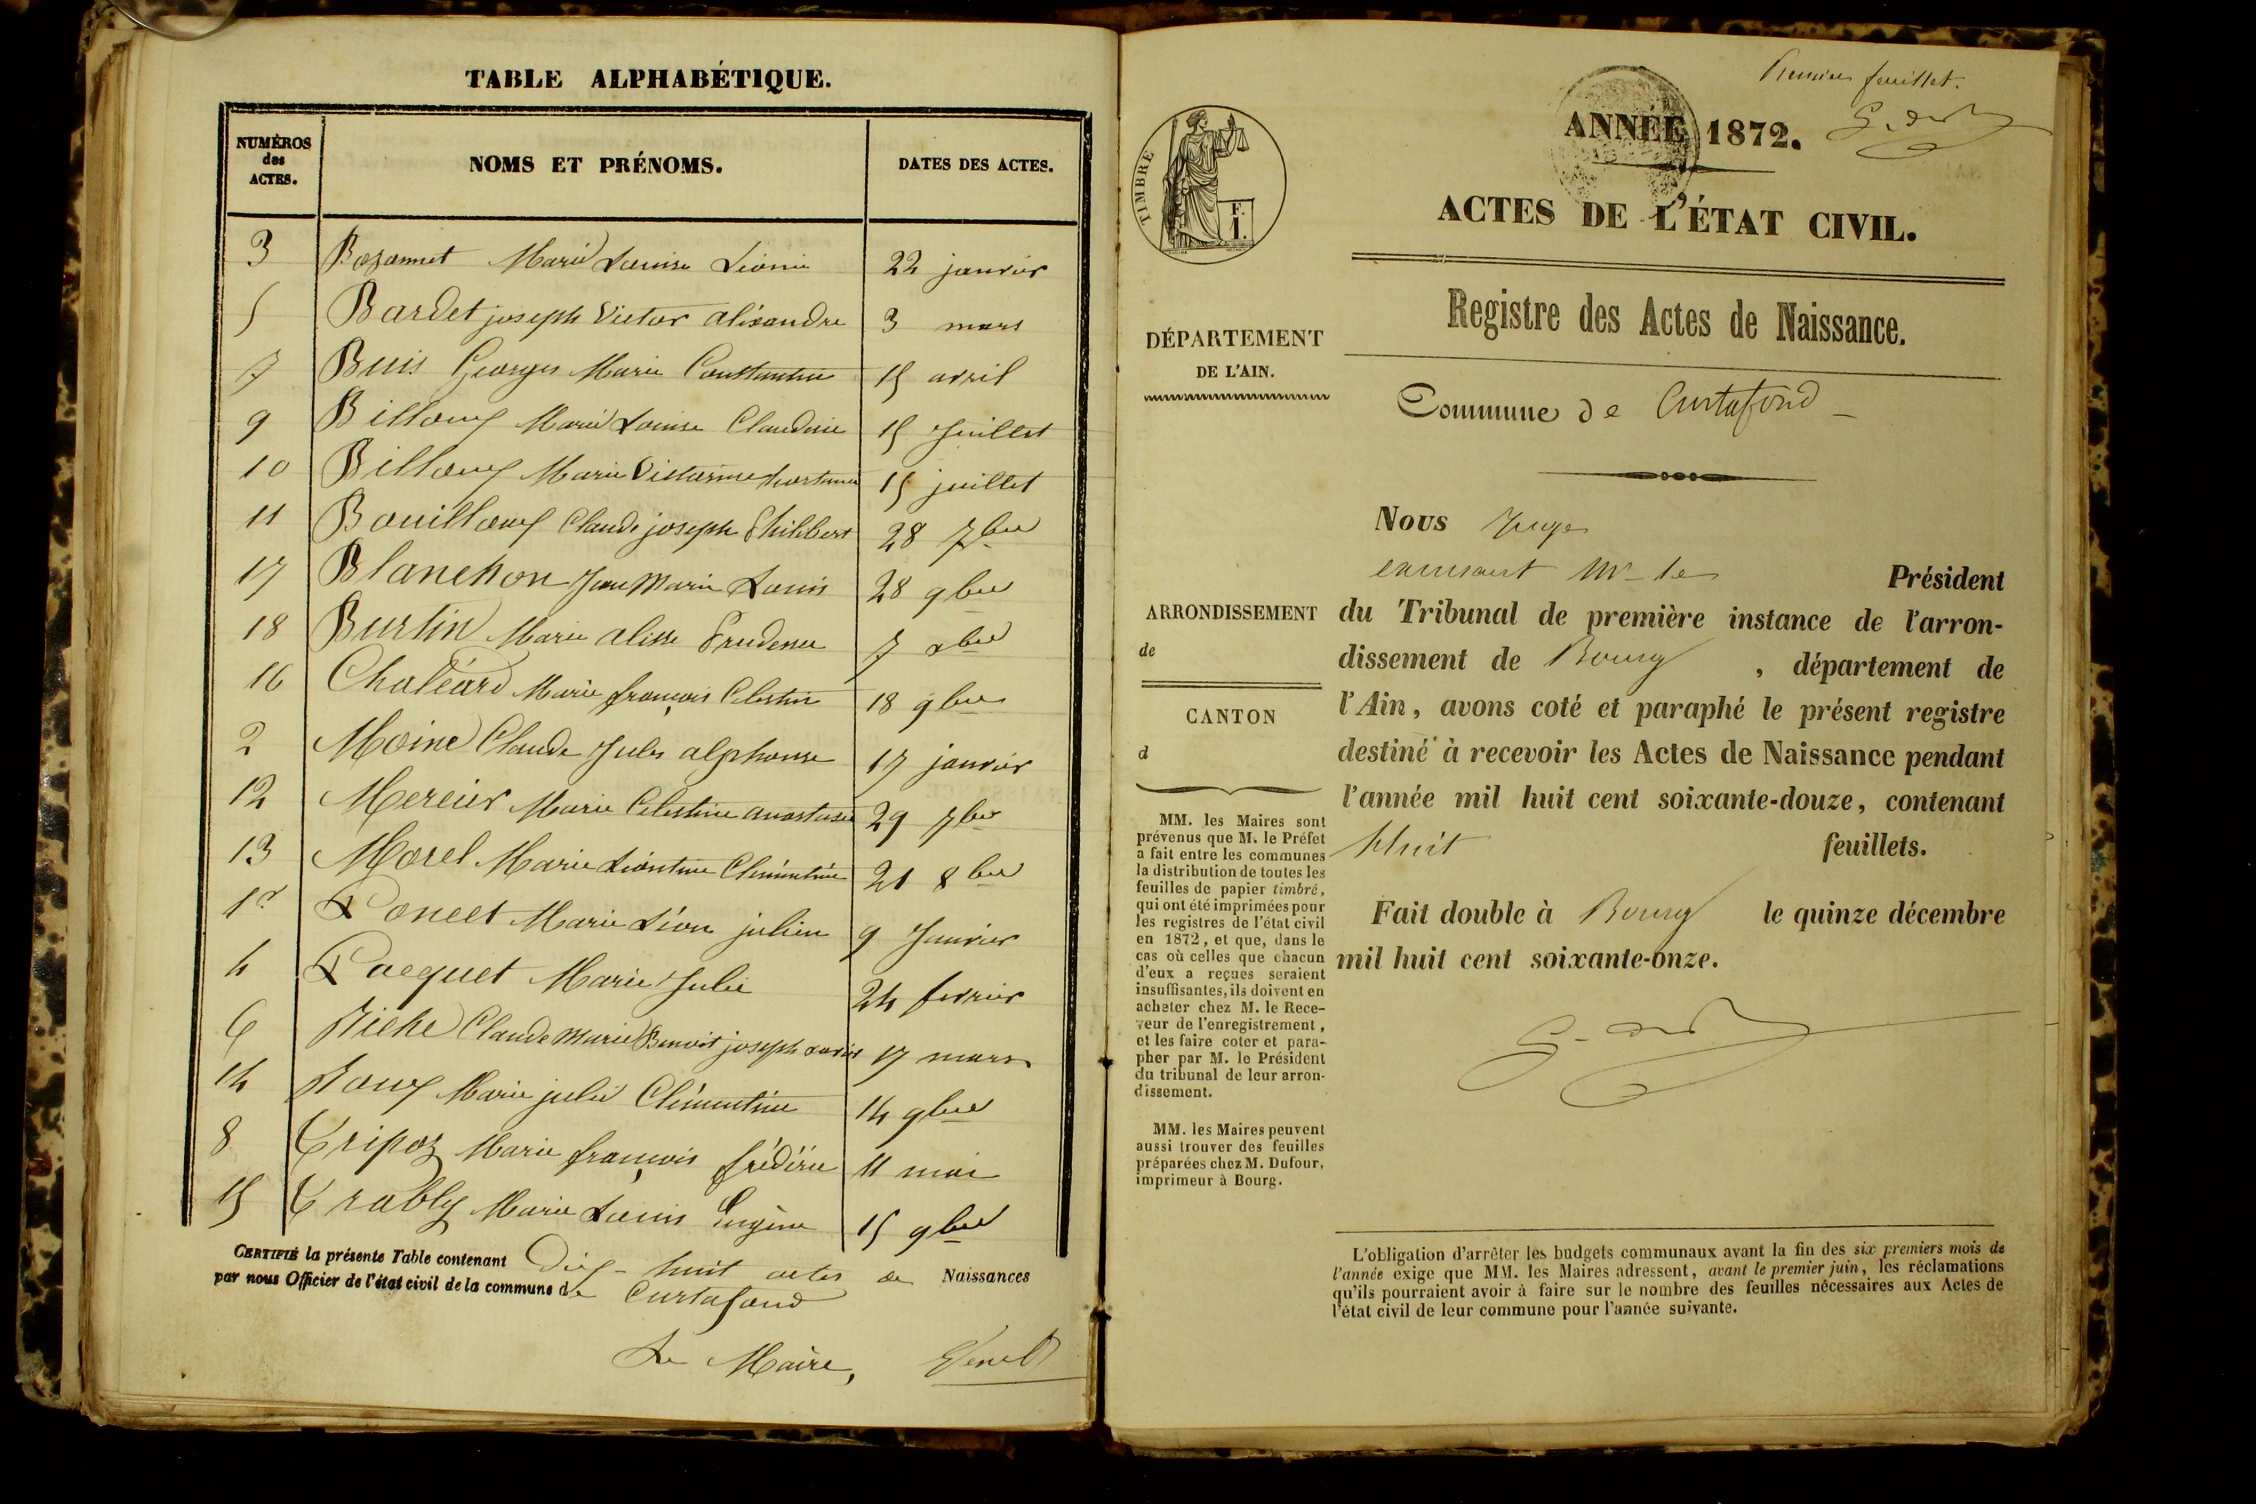 TABLE ALPHABÉTIQUE.
NUMÉROS
des
ACTES.
NOMS ET PRÉNOMS.
DATES DES ACTES.
3 Bozonnet Marie Louise Léonie 22 janvier
5 Bardet joseph Victor alexandre 3 mars
7 Buis Georges Marie Constantin 15 avril
9 Billoux Marie Louise Claudine 15 Juillet
10 Billoux Marie Victorine 15 juillet
11 Bouilloux Claude joseph Philibert 28 7bre
17 Blanchon Jean Marie Louis 28 9bre
18 Burtin Marie alisse Prudence 7 xbre
16 Chaléard Marie françois Célestin 18 9bre
2 Moine Claude Jules alphonse 17 janvier
12 Mercier Marie Celestine anastasie 29 7bre
13 Morel Marie Léontine Clémentine 21 8bre
1er Poncet Marie Léon julien 9 Janvier
4 Pacquet Marie Julie 24 fevrier
6 Riche Claude Marie Benoit joseph xavier 17 mars
14 Roux Marie julie Clémentine 14 9bre
8 Tripoz Marie françois frédéric 11 mai
15 Trably Marie Louis Eugène 15 9bre
CERTIFIÉ la présente Table contenant Dix-huit actes de Naissances
par nous Officier de l'état civil de la commune de Curtafond
Le Maire,
Premier feuillet.
ANNÉE 1872.
TIMBRE
F.
1.
ACTES DE L'ÉTAT CIVIL.
Registre des Actes de Naissance.
DÉPARTEMENT
DE L'AIN.
Commune de Curtafond
Nous Juge
excusant Mr le Président
ARRONDISSEMENT
de
du Tribunal de première instance de l'arron-
dissement de Bourg, département de
CANTON
d
l'Ain, avons coté et paraphé le présent registre
destiné à recevoir les Actes de Naissance pendant
l'année mil huit cent soixante-douze, contenant
Huit feuillets.
Fait double à Bourg le quinze décembre
mil huit cent soixante-onze.
MM. les Maires sont
prévenus que M. le Préfet
a fait entre les communes
la distribution de toutes les
feuilles de papier timbré,
qui ont été imprimées pour
les registres de l'état civil
en 1872, et que, dans le
cas où celles que chacun
d'eux a reçues seraient
insuffisantes, ils doivent en
acheter chez M. le Rece-
veur de l'enregistrement,
et les faire coter et para-
pher par M. le Président
du tribunal de leur arron-
dissement.
MM. les Maires peuvent
aussi trouver des feuilles
préparées chez M. Dufour,
imprimeur à Bourg.
L'obligation d'arrêter les budgets communaux avant la fin des six premiers mois de
l'année exige que MM. les Maires adressent, avant le premier juin, les réclamations
qu'ils pourraient avoir à faire sur le nombre des feuilles nécessaires aux Actes de
l'état civil de leur commune pour l'année suivante.